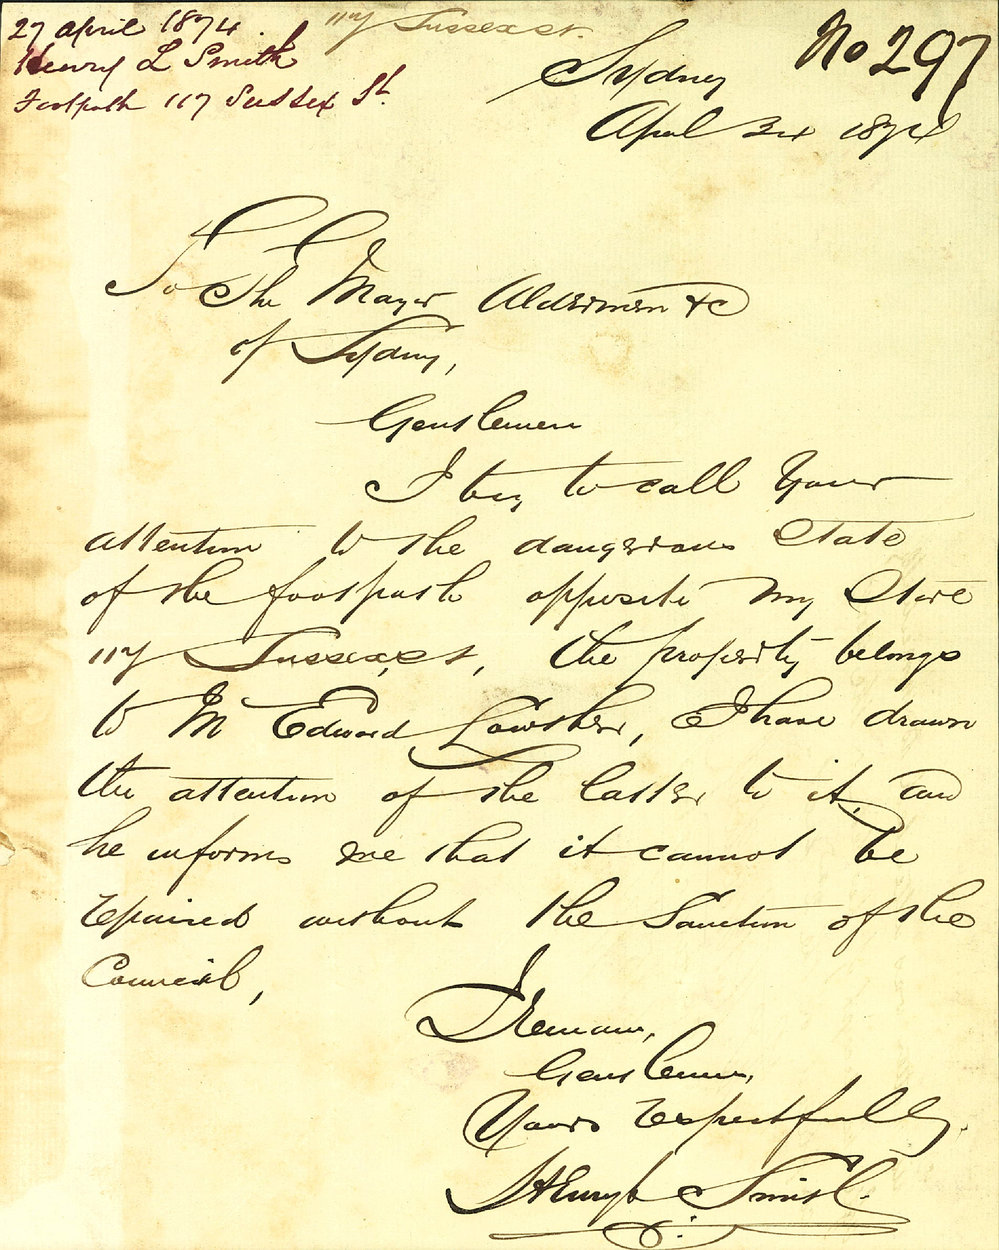 27 April 1874.
Henry L Smith
Footpath 117 Sussex St.
No 297
117 Sussex St.
Sydney
April 24 1874
To The Mayor Aldermen &c
of Sydney,
Gentlemen
I beg to call your
attention to the dangerous State
of the footpath opposite my Store
117 Sussex St, the property belongs
to Mr Edward Lowther, I have drawn
the attention of the latter to it, and
he informs me that it cannot be
repaired without the Sanction of the
Council,
I remain,
Gentlemen,
Yours respectfully.
Henry L Smith.